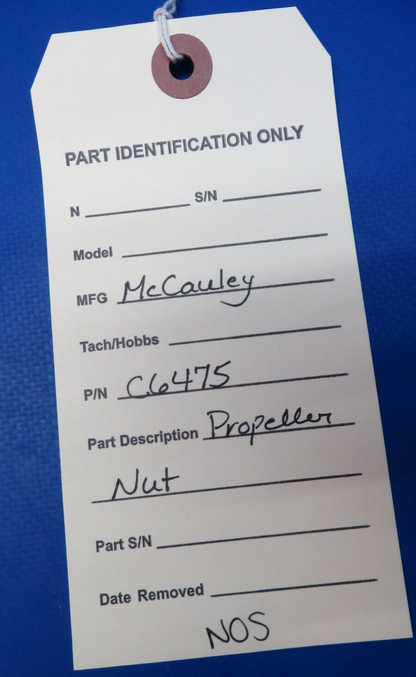 PART IDENTIFICATION ONLY
N S/N
Model
MFG McCauley
Tach/Hobbs
P/N C6475
Part Description Propeller
Nut
Part S/N
Date Removed
NOS